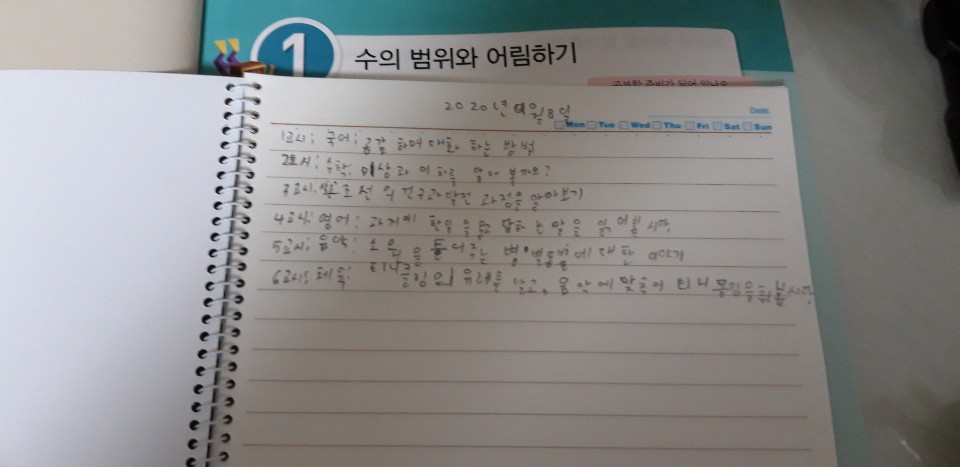 1
수의 범위와 어림하기
2020년 9월 8일
Date.
Mon Tue Wed Thu Fri Sat Sun
1교시: 국어: 공감 하며 대화 하는 방법
2교시: 수학: 이상과 이하를 알아 볼까요?
3교시: 조선 의 건국과 발전 과정을 알아보기
4교시: 영어: 과거에 한일을 답하는 말을 읽어봅시다.
5교시: 음악: 소원을 들어주는 별•별똥별에 대한 이야기
6교시: 체육: 티니클링의 유래를 알고, 음악에 맞추어 티니클링을 해봅시다.